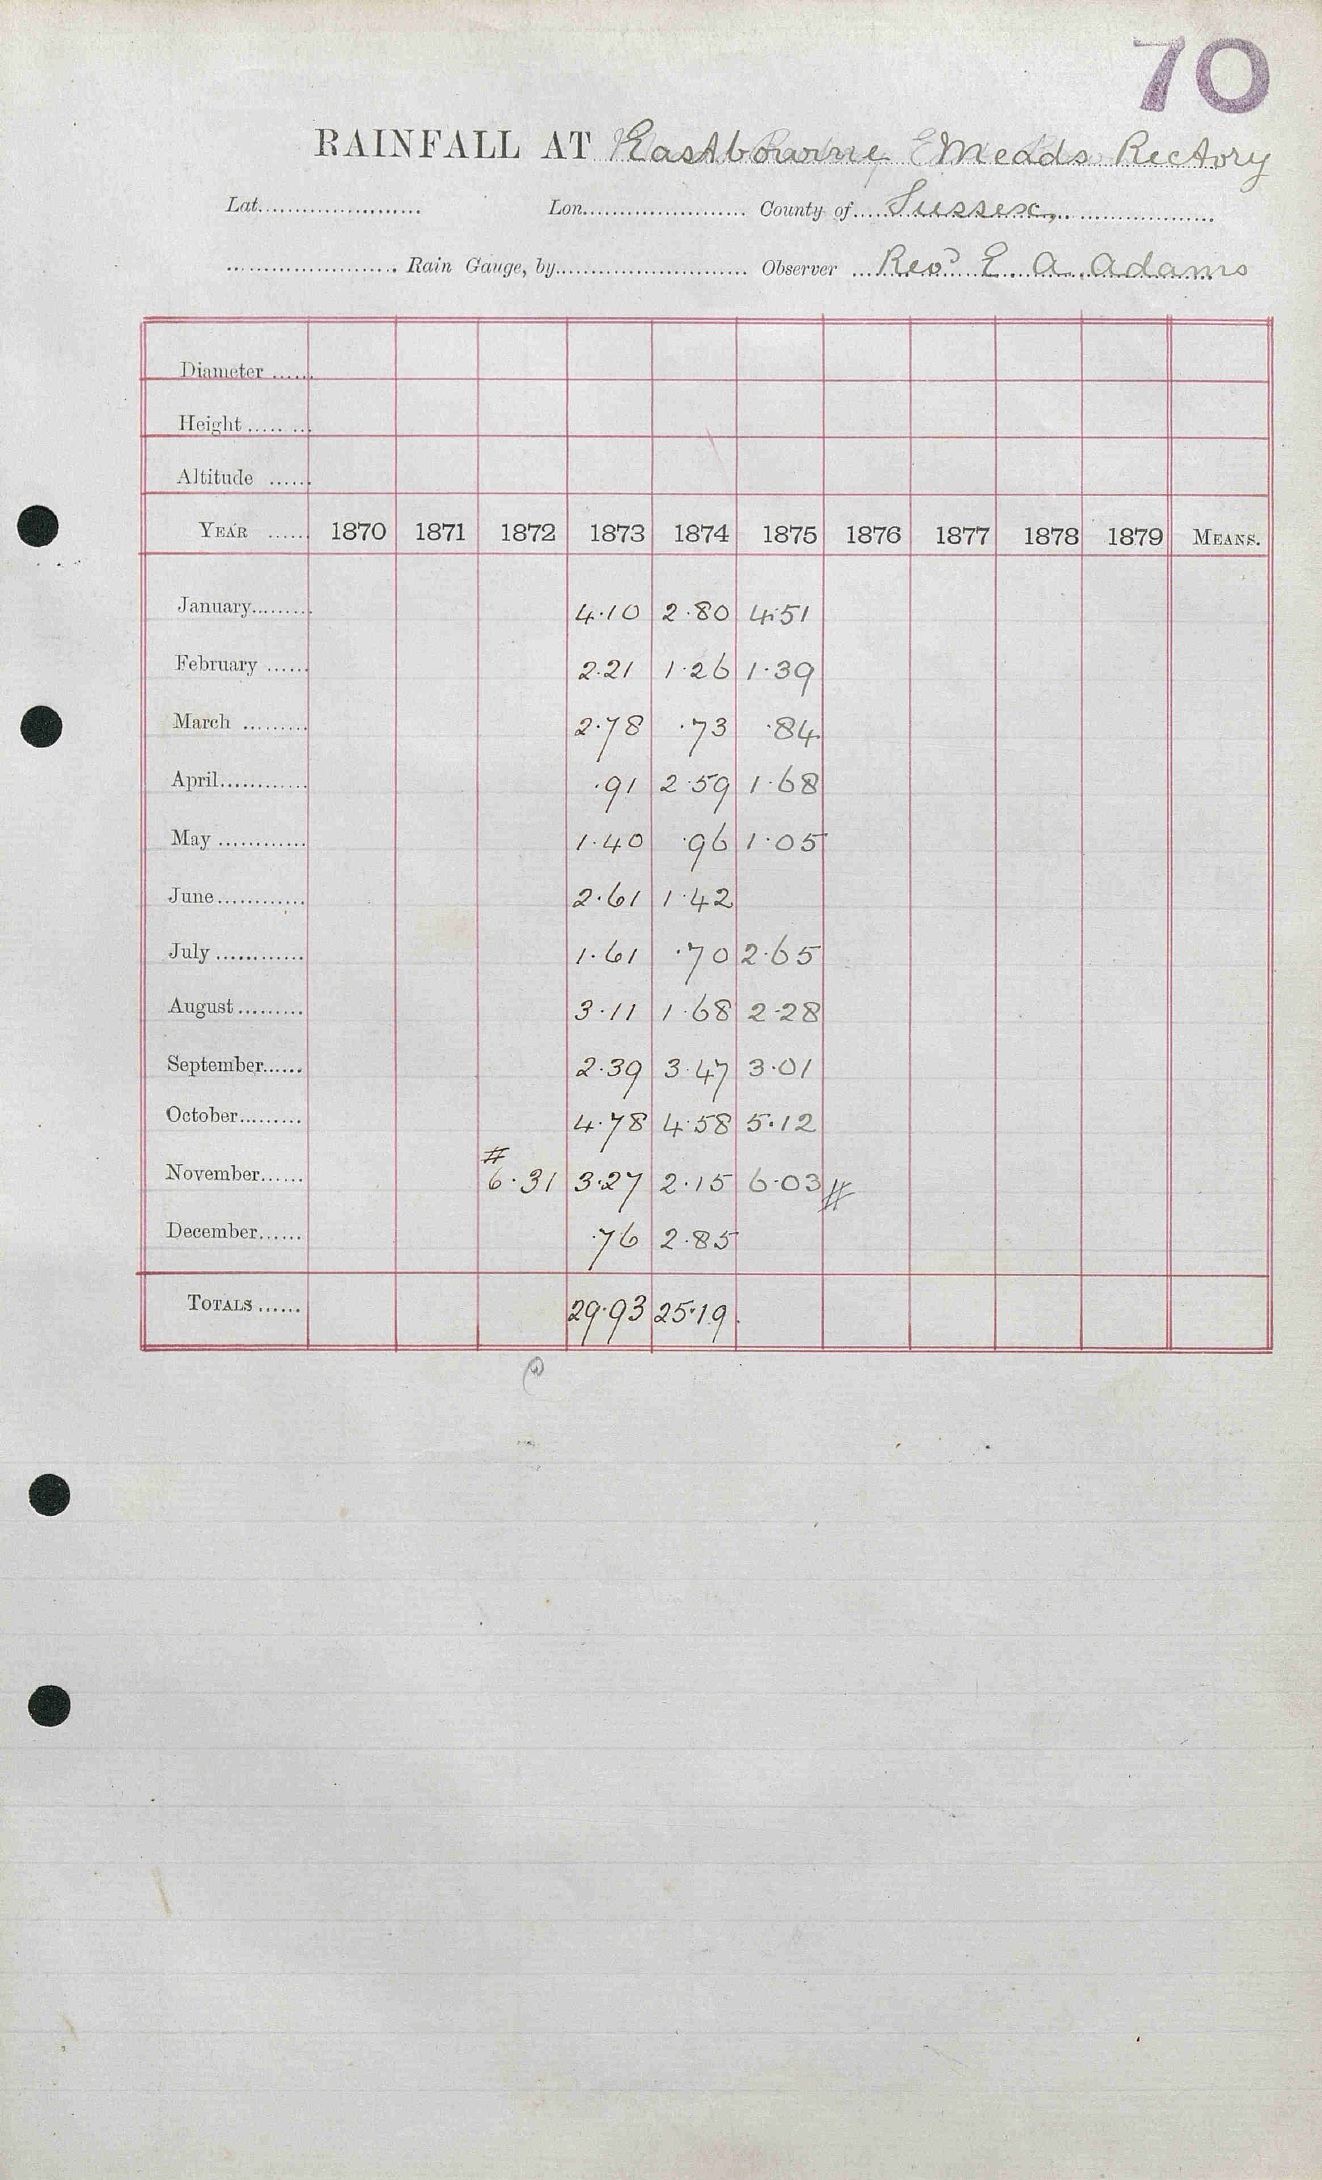 70
RAINFALL AT Eastbourne Meads Rectory
Lat. Lon. County of Sussex,
Rain Gauge, by Observer Revd E. A. Adams
Diameter
Height
Altitude
YEAR 1870 1871 1872 1873 1874 1875 1876 1877 1878 1879 MEANS.
January 4.10 2.80 4.51
February 2.21 1.26 1.39
March 2.78 .73 .84
April .91 2.59 1.68
May 1.40 .96 1.05
June 2.61 1.42
July 1.61 .70 2.65
August 3.11 1.68 2.28
September 2.39 3.47 3.01
October 4.78 4.58 5.12
November #6.31 3.27 2.15 6.03#
December .76 2.85
TOTALS 29.93 25.19